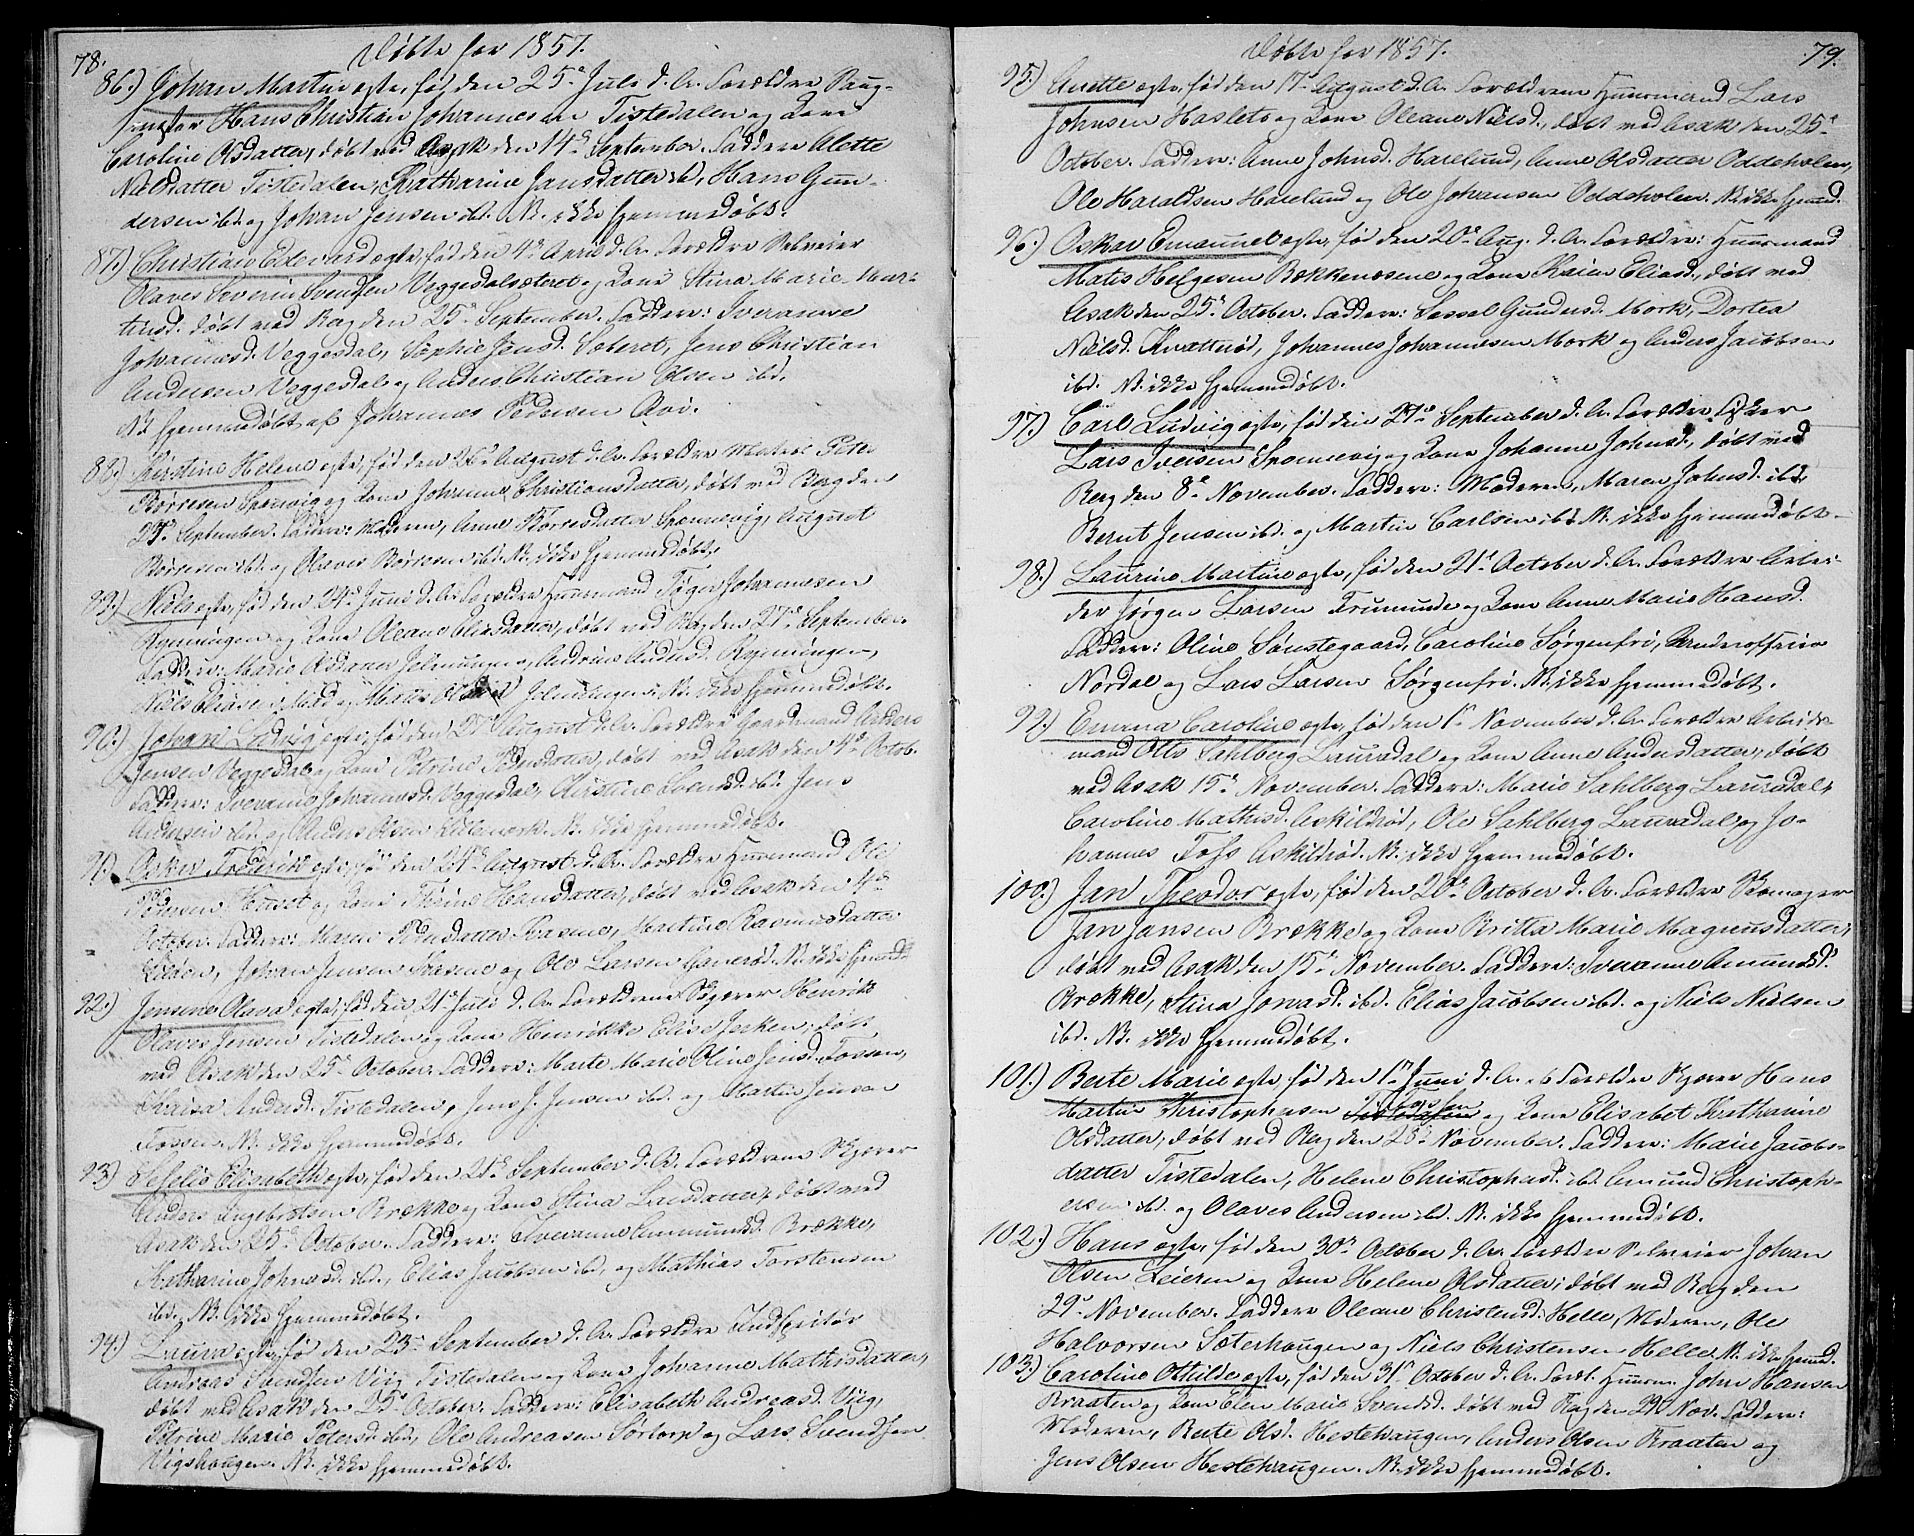 78.
Døbte for 1857.
86.) Johan Martin ægte, fød den 25de Juli d. A. Forældre Saug-
mester Hans Christian Johannesen Tistedalen og Kone
Caroline Olsdatter, døbt ved Asak den 14de September. Faddere Alette
Nilsdatter Tistedalen, Katharine Jansdatter ibd, Hans Gun-
dersen ibd. og Johan Jensen ibd. NB. ikke hjemmedøbt.
87.) Christian Edvard ægte, fød den 4de April d. A. Forældre Selveier
Olaves Severin Svendsen Veggedalsæteret og Kone Stina Marie Mar-
tinsd. døbt ved Berg den 25de September. Faddere: Iveranne
Johannesd. Veggesdal, Sophie Jensd. Sæteret, Jens Christian
Andersen Veggesdal og Anders Christian Olsen ibd.
NB hjemmedøbt af Johannes Pedersen
88.) Kirstine Helene ægte, fød den 26de August d. A. Forældre Matros Peter
Børresen Sponvig og Kone Johanne Christiansdatter, døbt ved Berg den
September. Faddere: Moderen, Anne Børresdatter Sponnevig, August
Børresen ibd. og Olaves Børresen ibd. NB. ikke hjemmedøbt.
89.) Niels ægte, fød den 24de Juni d. A. Forældre Huusmand Tøger Johannesen
Rynningen og Kone Oleane Eliasdatter, døbt ved Berg den 27de September.
Faddere: Marie og Andrine Andersd. Rynningen,
Niels Eliasen NB. ikke hjemmedøbt.
90.) Johan Ludvig ægte, fød den August d. A. Forældre Gaardmand Anders
Jensen Veggesdal og Kone Petrine Pedersdatter, døbt ved Asak den 4de Octob.
Faddere: Iveranne Johannesd. Veggesdal, Kirstine Svendsd. ibd. Jens
Andersen ibd. og Anders Olsen NB. ikke hjemmedøbt.
91.) Oskar Frederik ægte, fød den 24de August d. A. Forældre Huusmand Ole
Pedersen og Kone Hansdatter, døbt ved Asak den 4de
October. Faddere: Maren Martine Rasmusdatter
Johan Jensen og Ole Larsen NB. ikke hjemd.
92.) Jensine Olava ægte, fød den 21de Juli d. A. Forældrene Skjærer Henrik
Olaves Jensen Tistedalen og Kone Henrikke Elise døbt
ved Asak den 25de October. Faddere: Marte Marie Oline Jensd. Fossen,
Kaisa Andersd. Tistedalen, Jens J. Jensen ibd. og Martin Jensen
Fossen. NB. ikke hjemmedøbt.
93.) Sefelie Elisabeth ægte, fød den 21de September d. A. Forældrene Skjærer
Anders Ingebretsen Brække og Kone Stina Larsdatter, døbt ved
Asak den 25de October. Faddere: Iveranne Ammundsd. Brække,
Katharine Johnsd. ibd, Elias Jacobsen ibd. og Mathias Torstensen
ibd. NB. ikke hjemmedøbt.
94.) Laura ægte, fød den 23de September d. A. Forældre Indspektør
Andreas Svendsen Viig Tistedalen og Kone Johanne Mathisdatter,
døbt ved Asak den 25de October. Faddere: Elisabeth Andreasd. Viig,
Petrine Marie Petersd. ibd, Ole Andreasen Sørtorp og Lars Svendsen
Vigshougen. NB. ikke hjemmedøbt.
79.
Døbte for 1857.
95.) Anette ægte, fød den 17de August d. A. Forældrene Huusmand Lars
Johnsen Haslet og Kone Oleane Nielsd., døbt ved Asak den 25de
October. Faddere: Anne Johnsd. Harelund, Anne Olsdatter Oddeholen,
Ole Haraldsen Harelund og Ole Johansen Oddeholen. NB. ikke hjemd.
96.) Oskar Emanuel ægte, fød den 20de Aug. d. A. Forældre: Huusmand
Matis Helgesen Bækkenæsene og Kone Karen Eliasd., døbt ved
Asak den 25de October. Faddere: Sessel Gundersd. Mork, Dortea
Nielsd. Knatterød, Johannes Johannesen Mork og Anders Jacobsen
ibd. NB. ikke hjemmedøbt.
97.) Carl Ludvig ægte, fød den 27de September d. A. Forældre Fisker
Lars Iversen Sponnevig og Kone Johanne Johnsd., døbt ved
Berg den 8de November. Faddere: Moderen, Maren Johnsd. ibd,
Bernt Jensen ibd. og Martin Carlsen ibd. NB. ikke hjemmedøbt.
98.) Laurine Martine ægte, fød den 21de October d. A. Forældre Arbei-
der Jørgen Larsen Frumunde og Kone Anne Marie Hansd.
Faddere: Oline Sønstegaard, Caroline Sørgenfri, Underofficier
Nordal og Lars Larsen Sørgenfri. NB. ikke hjemmedøbt.
99.) Emma Caroline ægte, fød den 1ste November d. A. Forældre Arbeids-
mand Otto Sahlberg Laurdal og Kone Anne Andersdatter, døbt
ved Asak 15de November. Faddere: Marie Sahlberg Laursdal,
Caroline Mathisd. Askildrød, Ole Sahlberg Laursdal, og Jo-
hannes Foss Askildrød. NB. ikke hjemmedøbt.
100.) Jan Theodor ægte, fød den 20de October d. A. Forældre Skomager
Jan Jansen Brække og Kone Britta Marie Magnusdatter,
døbt ved Asak den 15de November. Faddere: Iveranne Amundsd.
Brække, Stina Jonasd. ibd. Elias Jacobsen ibd. og Niels Nielsen
ibd. NB. ikke hjemmedøbt.
101.) Berte Marie ægte, fød den 1ste Juni d. A. Forældre Skjærer Hans
Martin Christophersen Fossen og Kone Elisabet Katharine
Olsdatter, døbt ved Berg den November. Faddere: Marie Jacobs-
datter Tistedalen, Helene Christophersd. ibd. Amund Christoph-
ersen ibd. og Olaves Andersen ibd. NB. ikke hjemmedøbt.
102.) Hans ægte, fød den 30de October d. A. Forældre Selveier Johan
Olsen Leieren og Kone Helene Olsdatter, døbt ved Berg den
29de November. Faddere Oleane Christensd. Helle, Moderen, Ole
Halvorsen Sæterhaugen og Niels Christensen Helle NB. ikke hjemmd.
103.) Caroline Othilde ægte, fød den 31te October d. A. Foræl. Huusm. John Hansen
Braaten og Kone Elen Marie Svendsd. døbt ved Berg den 29 Nov. Faddere:
Moderen, Berte Olsd. Hestehaugen, Anders Olsen Braaten og
Jens Olsen Hestehaugen. NB. ikke hjemmedøbt.